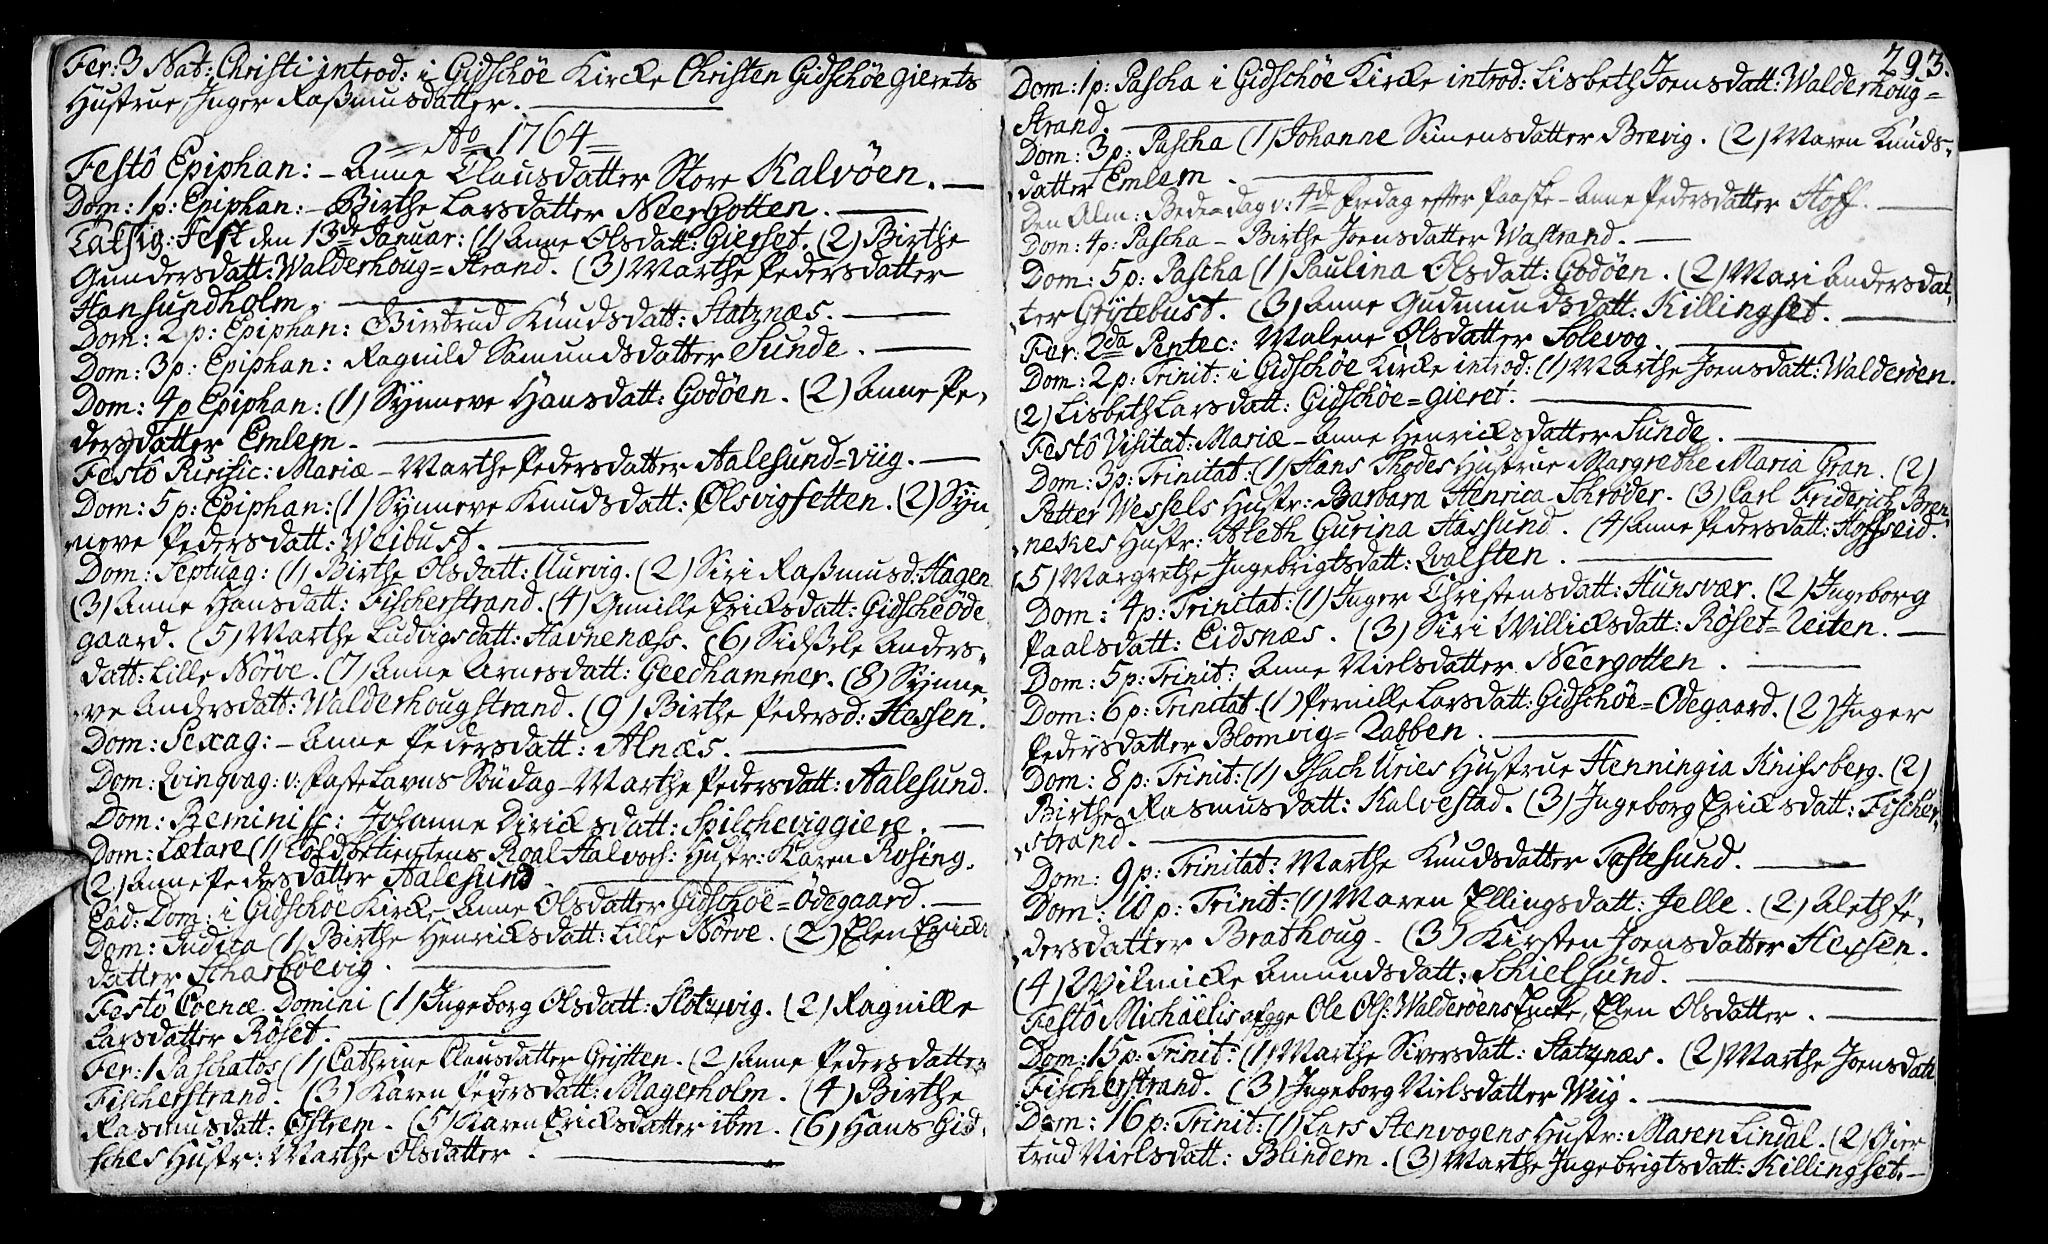 Fer: 3 Nat: Christi introd: i Gidschöe Kircke Christen Gidschöe gierets
Hustrue, Inger Raßmusdatter.
= Ao 1764 =
Festô Epiphan: - Anne Clausdatter Store Kalvöen.
Dom: 1 p: Epiphan: - Birthe Larsdatter Neergotten.
Taksig: Fest den 13de Januar: (1) Anne Olsdatt: Gierset. (2) Birthe
Gundersdatt: Walderhoug=Strand. (3) Marthe Pedersdatter
Hansundholm.
Dom: 2 p: Epiphan: Giertrud Knudsdatt: Slatznæs.
Dom: 3 p: Epiphan: Ragnild Samundsdatter Sunde.
Dom: 4 p Epiphan: (1) Synneve Hansdatt: Godöen. (2) Anne Pe-
dersdatter Emlem.
Festô Purific: Mariæ - Marthe Pedersdatter Aalesund=viig.
Dom: 5 p: Epiphan: (1) Synneve Knudsdatt: Olsvigsetten. (2) Syn
neve Pedersdatt: Weibust.
Dom: Septuag: (1) Birthe Olsdatt: Uurvig. (2) Siri Raßmusd: Hagen
(3) Anne Hansdatt: Fischerstrand. (4) Gunille Ericksdatt: Gidscheöde
gaard. (5) Marthe Ludvigsdatt: Havnenæss. (6) Sidßele Anders-
datt: Lille Nörve. (7) Anne Arnesdatt: Geedhammer. (8) Synne
ve Andersdatt: Walderhougstrand. (9) Birthe Pedersd: Hessen.
Dom: Sexag: - Anne Pedersdatt: Alnæs.
Dom: Qvinqvag: v: Fastelavns Söndag - Marthe Pedersdatt: Aalesund.
Dom: Reminisc: Johanne Diricksdatt: Spilscheviggiere.
Dom: Lætare (1) Toldbetientens Roal Halvors: Hustr: Karen Rosing.
(2) Anne Pedersdatter Aalesund
Ead: Dom: i Gidschöe Kirke Anne Olsdatter Gidschöe=Ödegaard.
Dom: Judica (1) Birthe Henricksdatt: Lille Nörve. (2) Elen Erichs
datter Scharböevig.
Festô Coenæ Domini (1) Ingeborg Olsdatt: Slotzvig. (2) Ragnille
Larsdatter Röset.
Fer: 1 Paschatos (1) Cathrine Clausdatter Grytten. (2) Anne Pedersdatter
Fischerstrand. (3) Karen Pedersdatt: Magerholm. (4) Birthe
Rasmusdatt: Östrem. (5) Karen Ericksdatter ibm. (6) Hans Gid
sches Hustr: Marthe Olsdatter.
293.
Dom: 1 p: Pascha i Gidschöe Kircke introd: Lisbeth Joensdatt: Walderhoug=
Strand.
Dom: 3 p: Pascha (1) Johanne Simensdatter Brevig. (2) Maren Knuds-
datter Emlem.
Den Alm: Bede=dag v: 4de Fredag efter Paaske - Anne Pedersdatter Hoff.
Dom: 4 p: Pascha - Birthe Joensdatter Wastrand.
Dom: 5 p: Pascha (1) Paulina Olsdatt: Godöen. (2) Mari Andersdat
ter Grytebust. (3) Anne Gudmundsdatt: Killingset.
Fer: 2da Pentec: Malene Olsdatter Solevog.
Dom: 2 p: Trinit: i Gidschöe Kircke introd: (1) Marthe Joensdatt: Walderöen.
(2) Lisbeth Larsdatt: Gidschöe=gieret.
Festô Visitat: Mariæ - Anne Henricksdatter Sunde.
Dom: 3 p: Trinitat: (1) Hans Thodes Hustrue Margrethe Maria Gran. (2)
Petter Wessels Hustr: Barbara Henrica Schrøder. (3) Carl Friderich Bren
nekes Hustr: Aleth Gurina Hassund. (4) Anne Pedersdatt: Hoffseid.
(5) Margrethe Ingebrigtsdatt: Qvalsten.
Dom: 4 p: Trinitat: (1) Inger Christensdatt: Hunsvær. (2) Ingeborg
Paalsdatt: Eidsnæs. (3) Siri Willicksdatt: Röset=Reiten.
Dom: 5 p: Trinit: Anne Nielsdatter Neergotten.
Dom: 6 p: Trinitat. (1) Pernille Larsdatt: Gidschöe=Odegaard. (2) Inger
Pedersdatter Blomvig=Rabben.
Dom: 8 p: Trinit: (1) Isach Uries Hustrue Henningia Knifsberg. (2)
Birthe Rasmusdatt: Kalvestad. (3) Ingeborg Ericksdatt: Fischer-
strand.
Dom: 9 p: Trinitat: Marthe Knudsdatter Tastesund.
Dom: 10 p: Trinit: (1) Maren Ellingsdatt: Jelle. (2) Aleth Pe-
dersdatter Brathoug. (3) Kirsten Joensdatter Hessen.
(4) Wilmicke Amundsdatt: Schielsund.
Festô Michaëlis afgge Ole Ols: Walderöens Encke, Elen Olsdatter.
Dom: 15 p: Trinit: (1) Marthe Siversdatt: Slatznæs. (2) Marthe Joensdatt
Fischerstrand. (3) Ingeborg Nielsdatter Wiig.
Dom: 16 p: Trinit: (1) Lars Stenvogens Hustr: Maren Lindal. (2) Gier
trud Nielsdatt: Blindem. (3) Marthe Ingebrigtsdatt: Killingset.